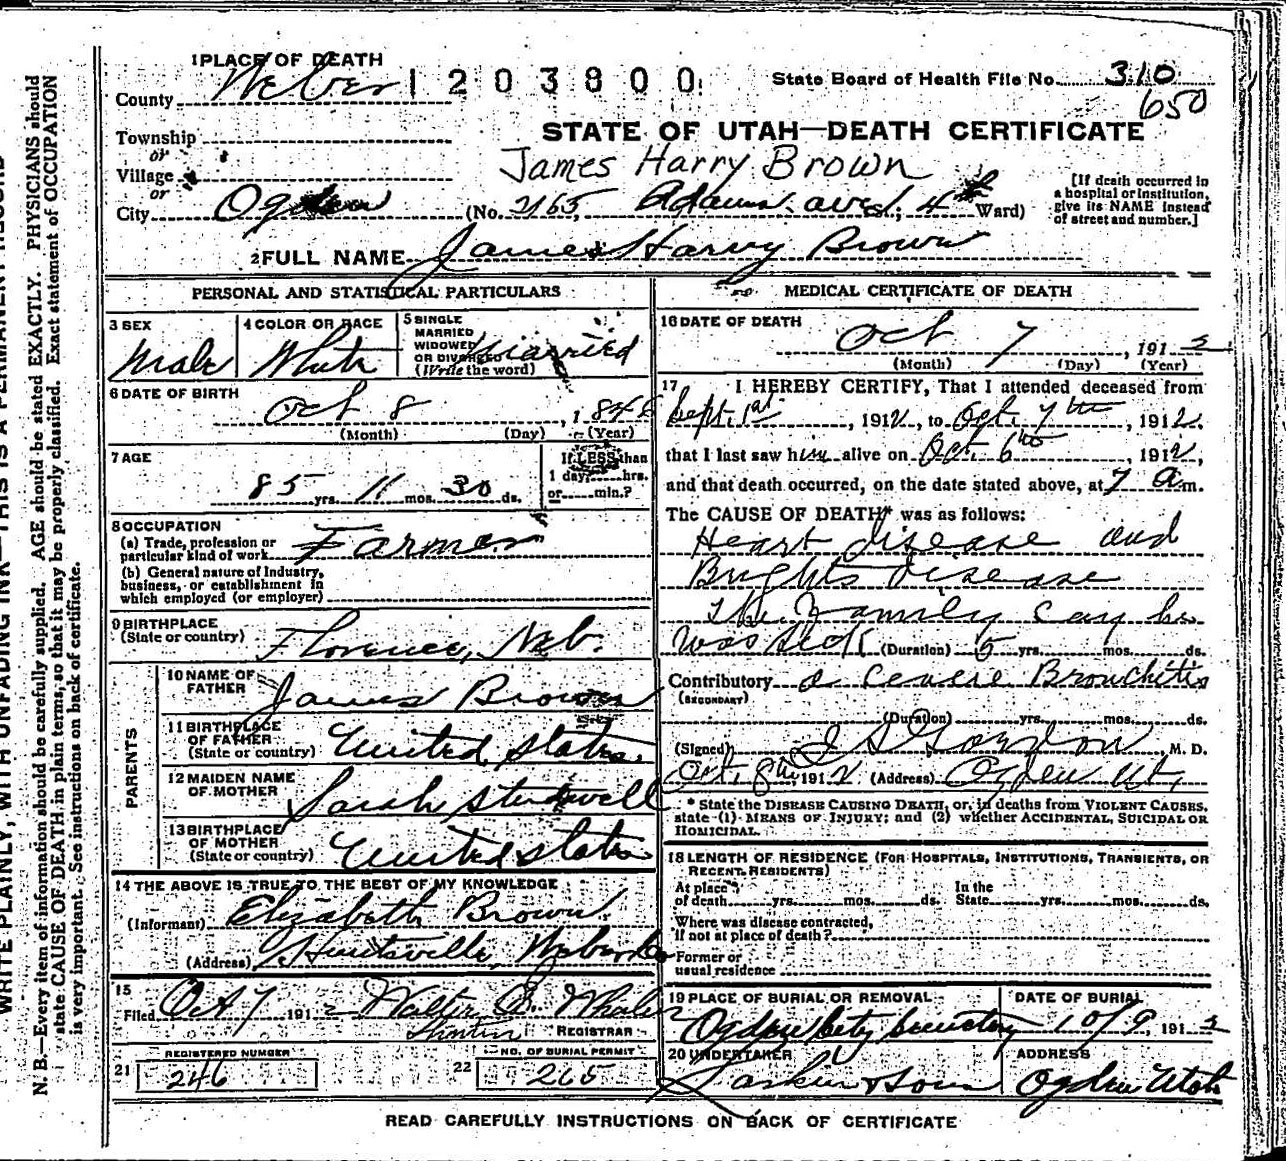 1 PLACE OF DEATH
County Weber 1203800 State Board of Health File No. 310
650
Township
or
STATE OF UTAH—DEATH CERTIFICATE
Village
James Harry Brown
or
City Ogden (No. 2165, Adams ave St.; 4th Ward)
[If death occurred in
a hospital or institution,
give its NAME instead
of street and number.]
2 FULL NAME James Harvy Brown
PERSONAL AND STATISTICAL PARTICULARS
3 SEX
Male
4 COLOR OR RACE
White
5 SINGLE
MARRIED
WIDOWED
OR DIVORCED
(Write the word)
Married
6 DATE OF BIRTH
Oct 8, 1
(Month) (Day) (Year)
7 AGE
85 yrs. 11 mos. 30 ds.
If LESS than
1 day, hrs.
or min.?
8 OCCUPATION
(a) Trade, profession or
particular kind of work Farmer
(b) General nature of Industry,
business, or establishment in
which employed (or employer)
9 BIRTHPLACE
(State or country) Florence, Neb.
PARENTS
10 NAME OF
FATHER James Brown
11 BIRTHPLACE
OF FATHER
(State or country) United States.
12 MAIDEN NAME
OF MOTHER Sarah
13 BIRTHPLACE
OF MOTHER
(State or country) United States
14 THE ABOVE IS TRUE TO THE BEST OF MY KNOWLEDGE
(Informant) Elizabeth Brown.
(Address) Huntsville, Weber Co
15
Filed Oct 7 1912 Walter S. Whalen
REGISTRAR
21 REGISTERED NUMBER
246
22 NO. OF BURIAL PERMIT
265
MEDICAL CERTIFICATE OF DEATH
16 DATE OF DEATH
Oct 7, 1912
(Month) (Day) (Year)
17 I HEREBY CERTIFY, That I attended deceased from
Sept. 1st, 1912, to Oct. 7th, 1912.
that I last saw him alive on Oct. 6th, 1912,
and that death occurred, on the date stated above, at 7 a m.
The CAUSE OF DEATH* was as follows:
Heart disease and
Brights disease
The Family say he
was sick (Duration) 5 yrs. mos. ds.
Contributory a severe Bronchitis
(SECONDARY)
(Duration) yrs. mos. ds.
(Signed) M. D.
Oct. 8th 1912 (Address) Ogden Ut.
* State the DISEASE CAUSING DEATH, or, in deaths from VIOLENT CAUSES,
state (1) MEANS OF INJURY; and (2) whether ACCIDENTAL, SUICIDAL OR
HOMICIDAL.
18 LENGTH OF RESIDENCE (FOR HOSPITALS, INSTITUTIONS, TRANSIENTS, OR
RECENT RESIDENTS)
At place
of death yrs. mos. ds.
In the
State yrs. mos. ds.
Where was disease contracted,
if not at place of death?
Former or
usual residence
19 PLACE OF BURIAL OR REMOVAL
Ogden City Cemetery
DATE OF BURIAL
10/9, 1912
20 UNDERTAKER
Larkin & Sons
ADDRESS
Ogden Utah
READ CAREFULLY INSTRUCTIONS ON BACK OF CERTIFICATE
WRITE PLAINLY, WITH UNFADING INK—THIS IS A PERMANENT RECORD
N. B.—Every item of information should be carefully supplied. AGE should be stated EXACTLY. PHYSICIANS should
state CAUSE OF DEATH in plain terms, so that it may be properly classified. Exact statement of OCCUPATION
is very important. See instructions on back of certificate.